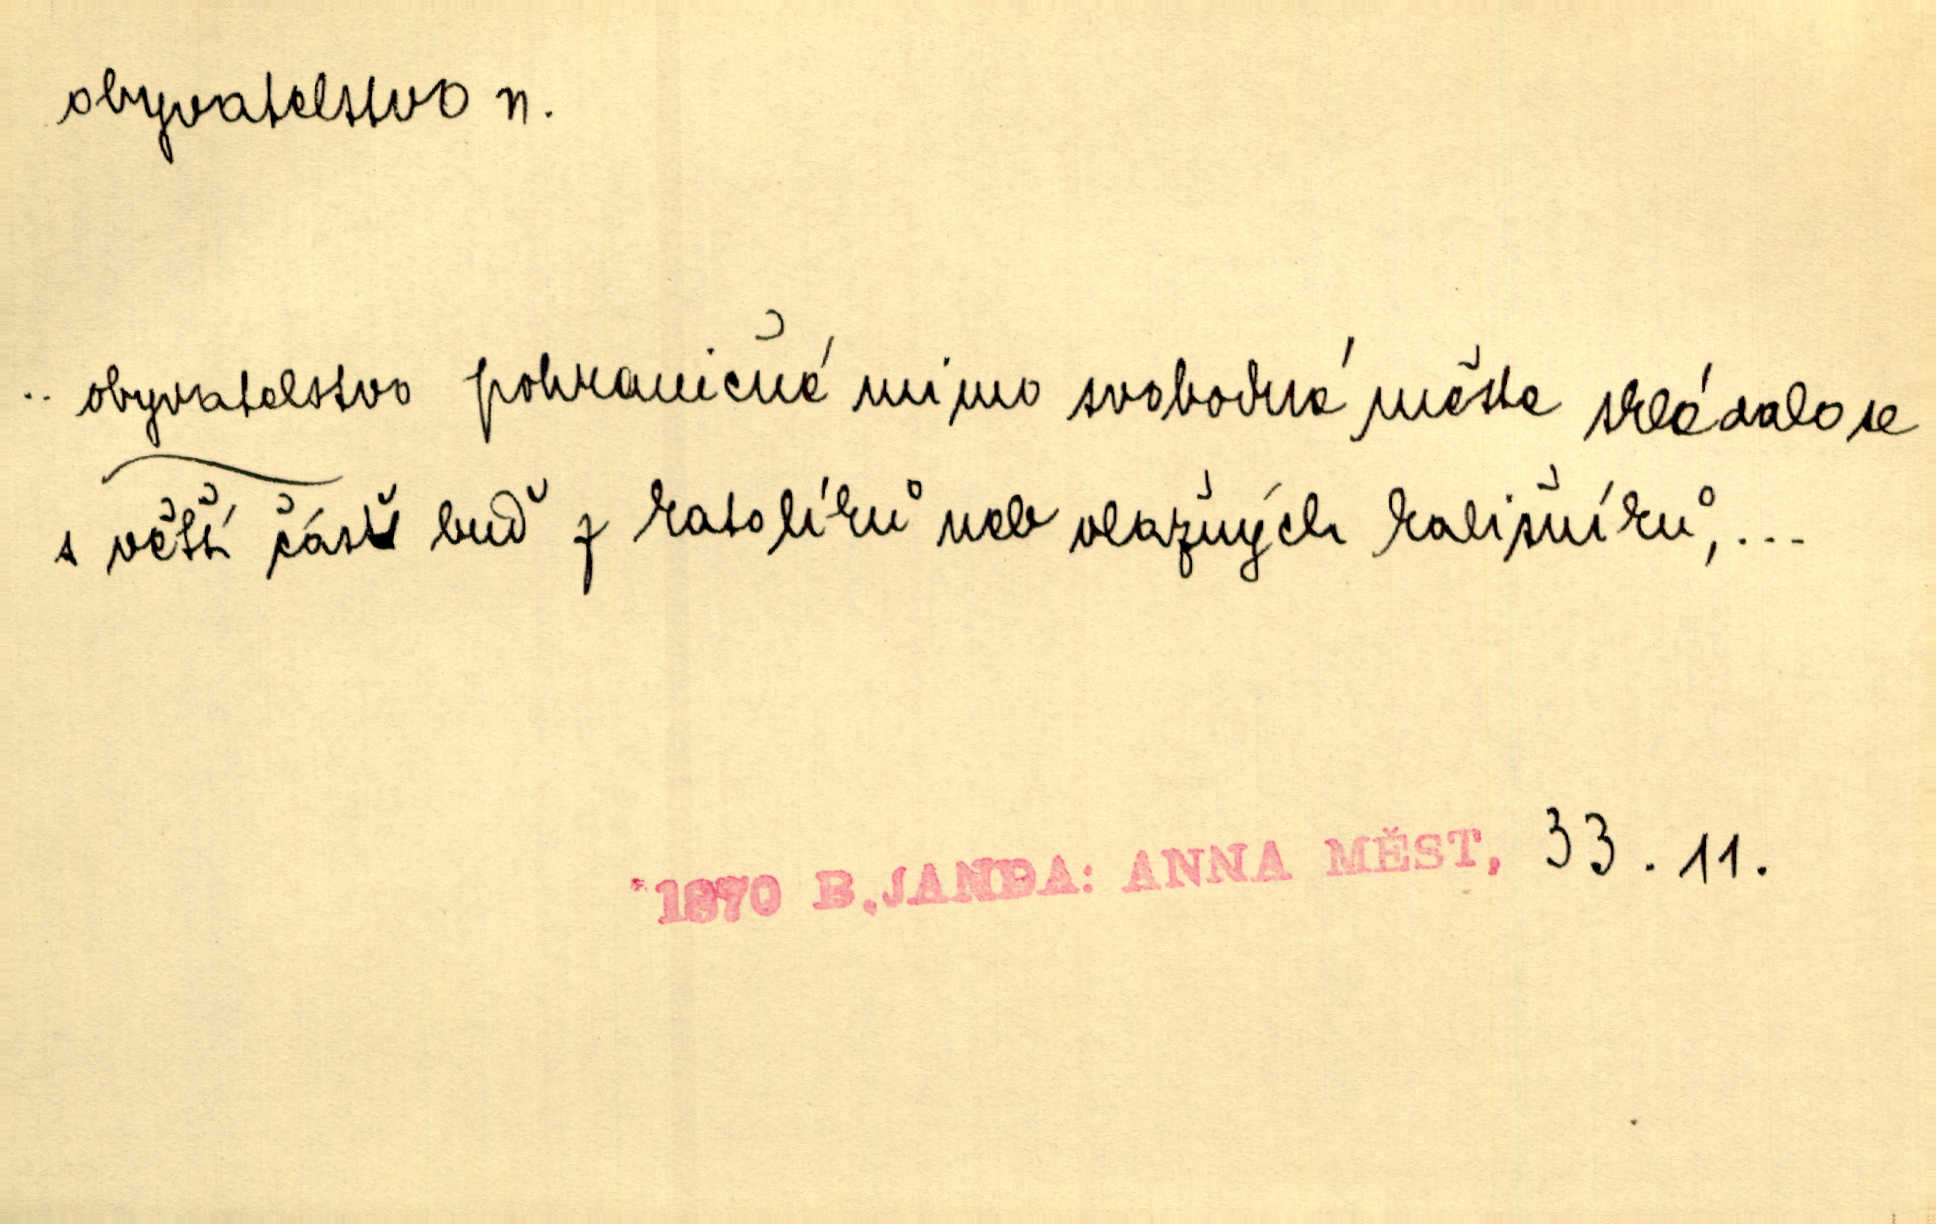 obyvatelstvo n.
.. obyvatelstvo pohraničné mimo svobodná města skládalo se
s větší části buď z katolíků neb vlažných kališníků, ...
1870 B.JANDA: ANNA MĚST, 33. 11.